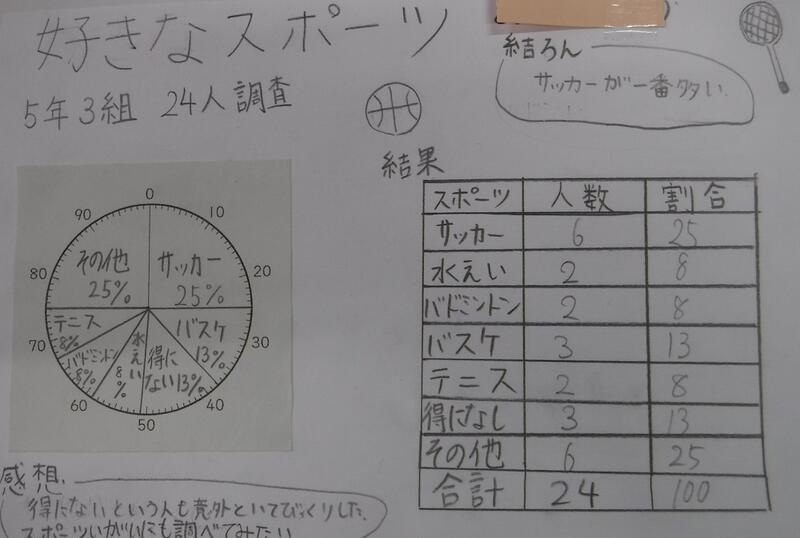 好きなスポーツ
5年3組 24人調査
結ろん
サッカーが一番多い
結果
スポーツ 人数 割合
サッカー 6 25
水えい 2 8
バドミントン 2 8
バスケ 3 13
テニス 2 8
得になし 3 13
その他 6 25
合計 24 100
0
10
20
30
40
50
60
70
80
90
サッカー
25%
バスケ
13%
得に
ない13%
水えい
8%
バドミントン
8%
テニス
8%
その他
25%
感想
得にないという人も意外といてびっくりした。
スポーツいがいにも調べてみたい